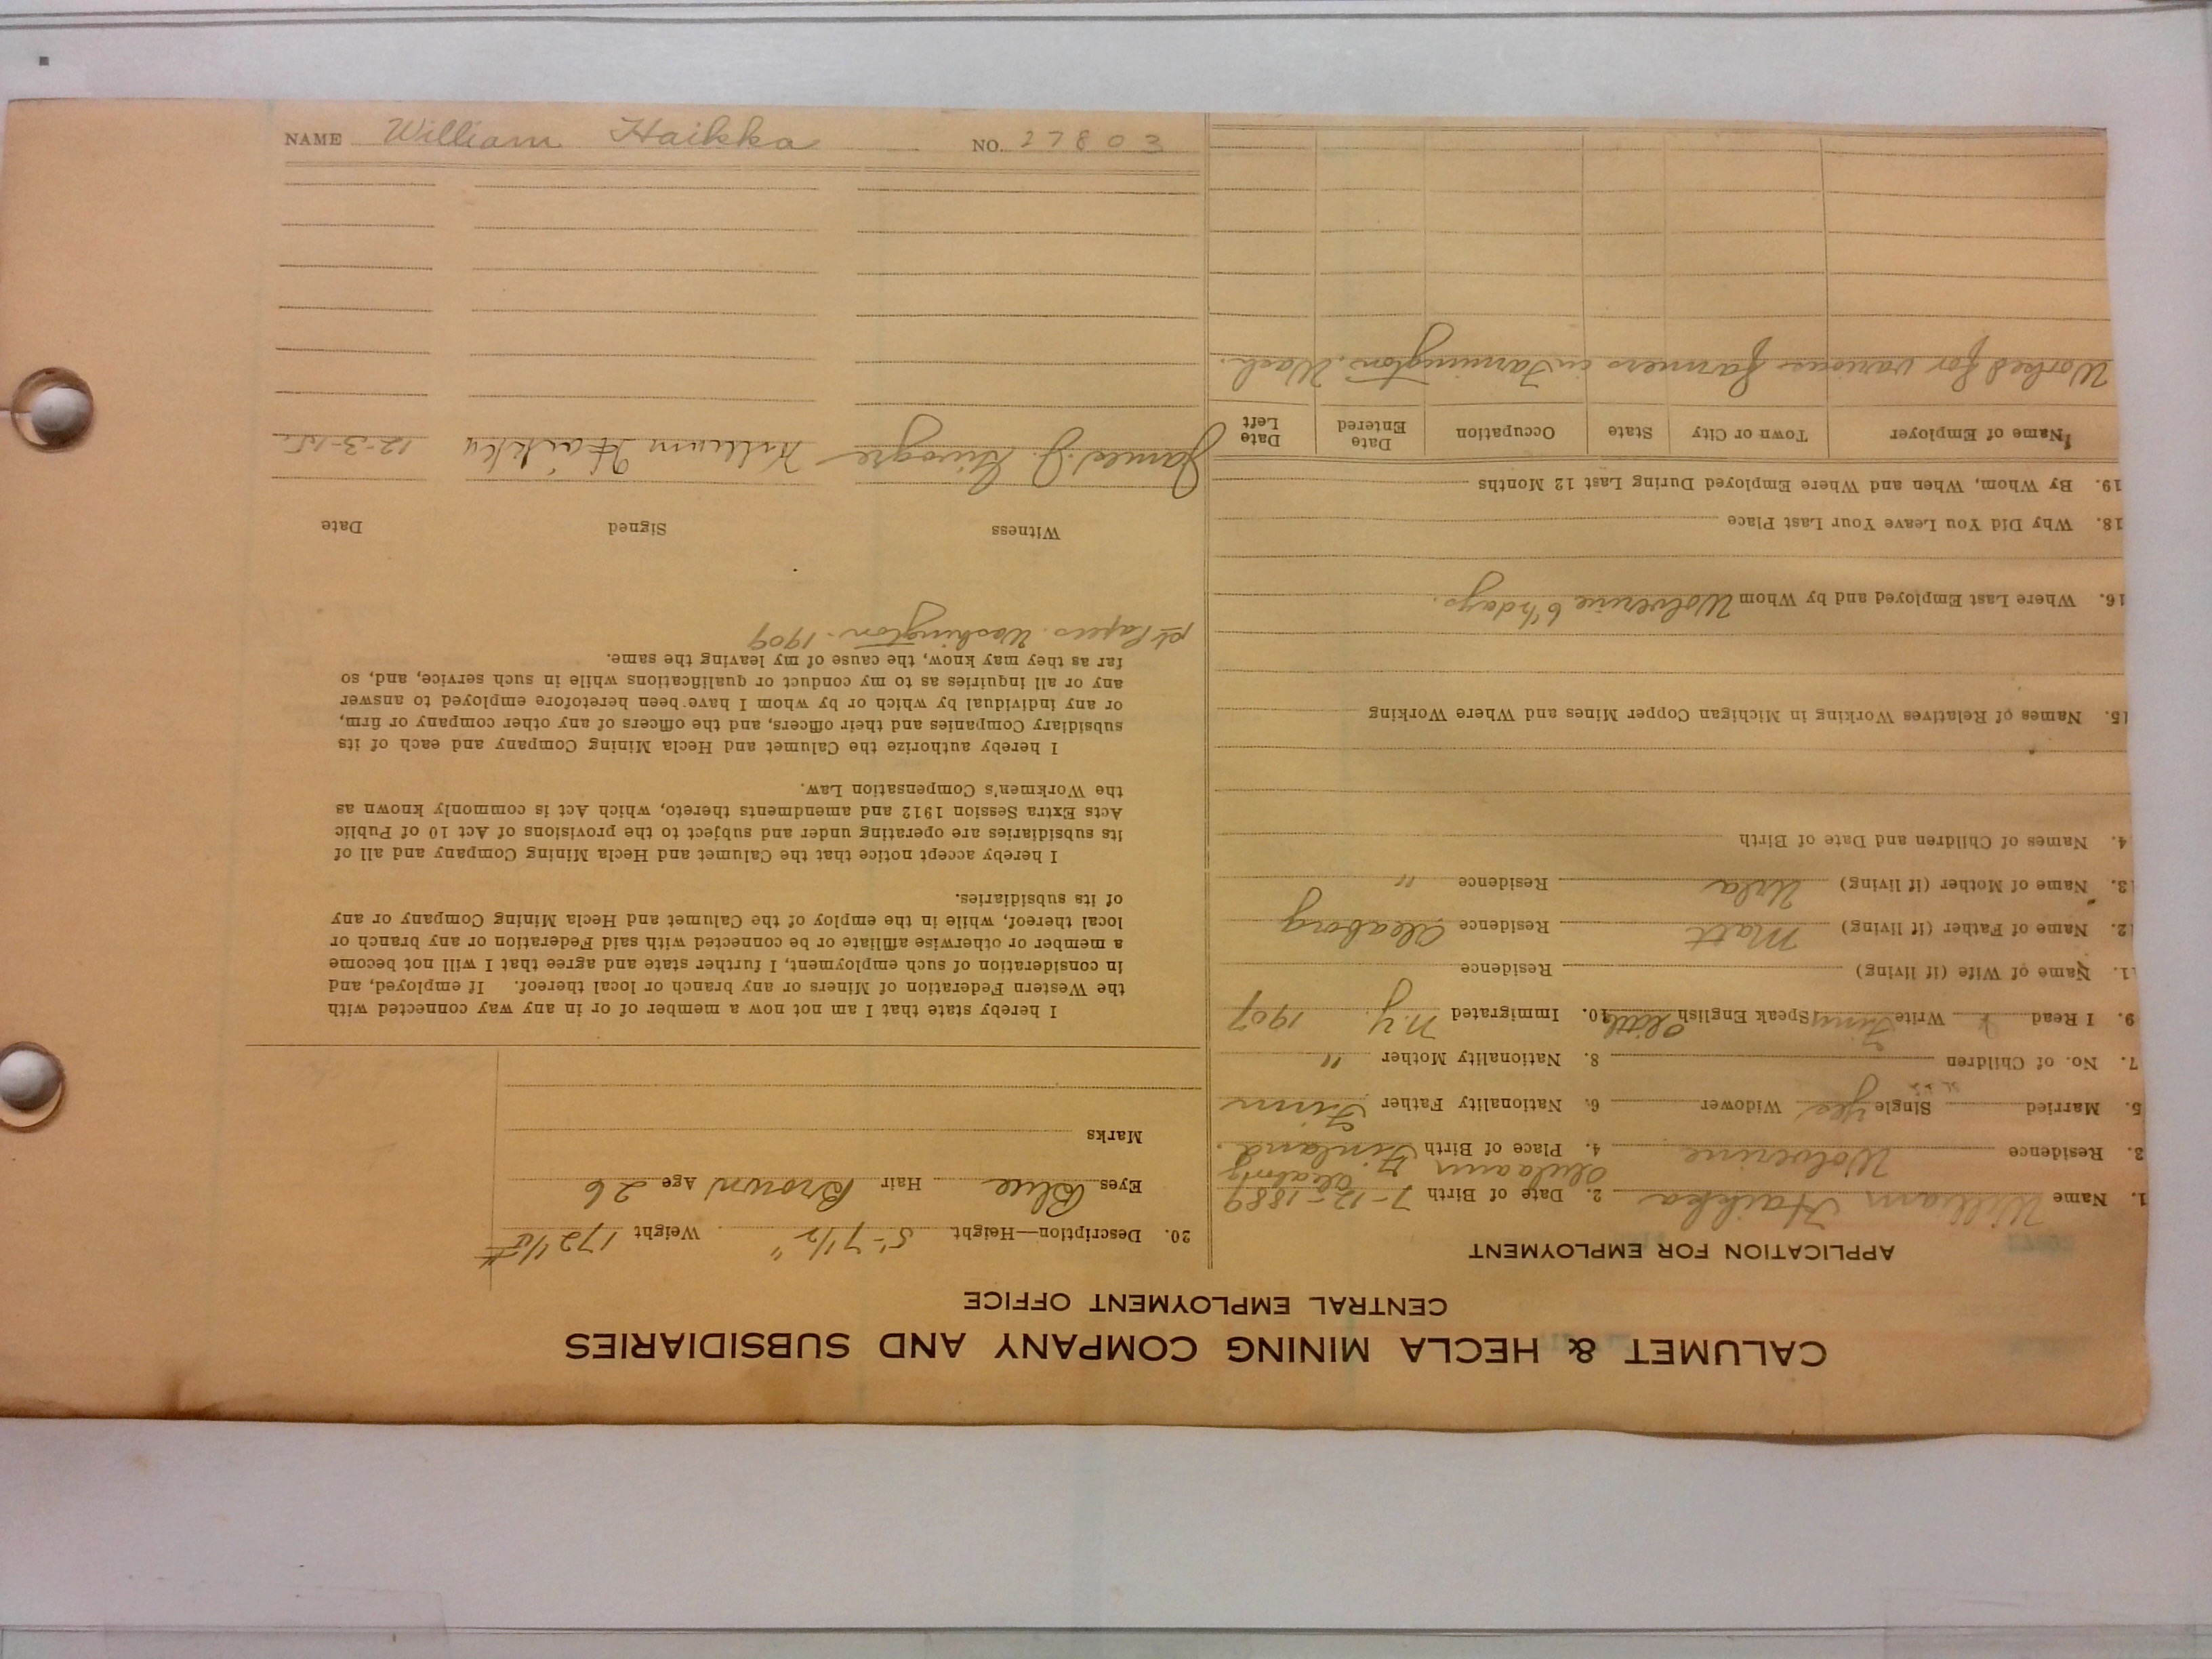 CALUMET & HECLA MINING COMPANY AND SUBSIDIARIES
CENTRAL EMPLOYMENT OFFICE
APPLICATION FOR EMPLOYMENT
1. Name William Haikka 2. Date of Birth 7-12-1889
3. Residence Wolverine 4. Place of Birth Finland.
5. Married Single yes Widower 6. Nationality Father Finn
7. No. of Children 8. Nationality Mother "
9. I Read Write Finn Speak English little 10. Immigrated N.Y. 1907
1. Name of Wife (if living) Residence
2. Name of Father (if living) Matt Residence Uleaborg
3. Name of Mother (if living) Residence "
4. Names of Children and Date of Birth
15. Names of Relatives Working in Michigan Copper Mines and Where Working
16. Where Last Employed and by Whom Wolverine 6½ days.
18. Why Did You Leave Your Last Place
19. By Whom, When and Where Employed During Last 12 Months
Name of Employer Town or City State Occupation Date Entered Date Left
Worked for various farmers in Farmington, Wash.
20. Description—Height 5'-7½" Weight 172
Eyes Blue Hair Brown Age 26
Marks
I hereby state that I am not now a member of or in any way connected with
the Western Federation of Miners or any branch or local thereof. If employed, and
in consideration of such employment, I further state and agree that I will not become
a member or otherwise affiliate or be connected with said Federation or any branch or
local thereof, while in the employ of the Calumet and Hecla Mining Company or any
of its subsidiaries.
I hereby accept notice that the Calumet and Hecla Mining Company and all of
its subsidiaries are operating under and subject to the provisions of Act 10 of Public
Acts Extra Session 1912 and amendments thereto, which Act is commonly known as
the Workmen's Compensation Law.
I hereby authorize the Calumet and Hecla Mining Company and each of its
subsidiary Companies and their officers, and the officers of any other company or firm,
or any individual by which or by whom I have been heretofore employed to answer
any or all inquiries as to my conduct or qualifications while in such service, and, so
far as they may know, the cause of my leaving the same.
Papers. Washington - 1909
Witness Signed Date
James J. William Haikka 12-3-15.
NAME William Haikka NO. 27803